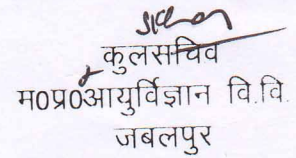 कुलसचिव
म0प्र0आयुर्विज्ञान वि.वि.
जबलपुर